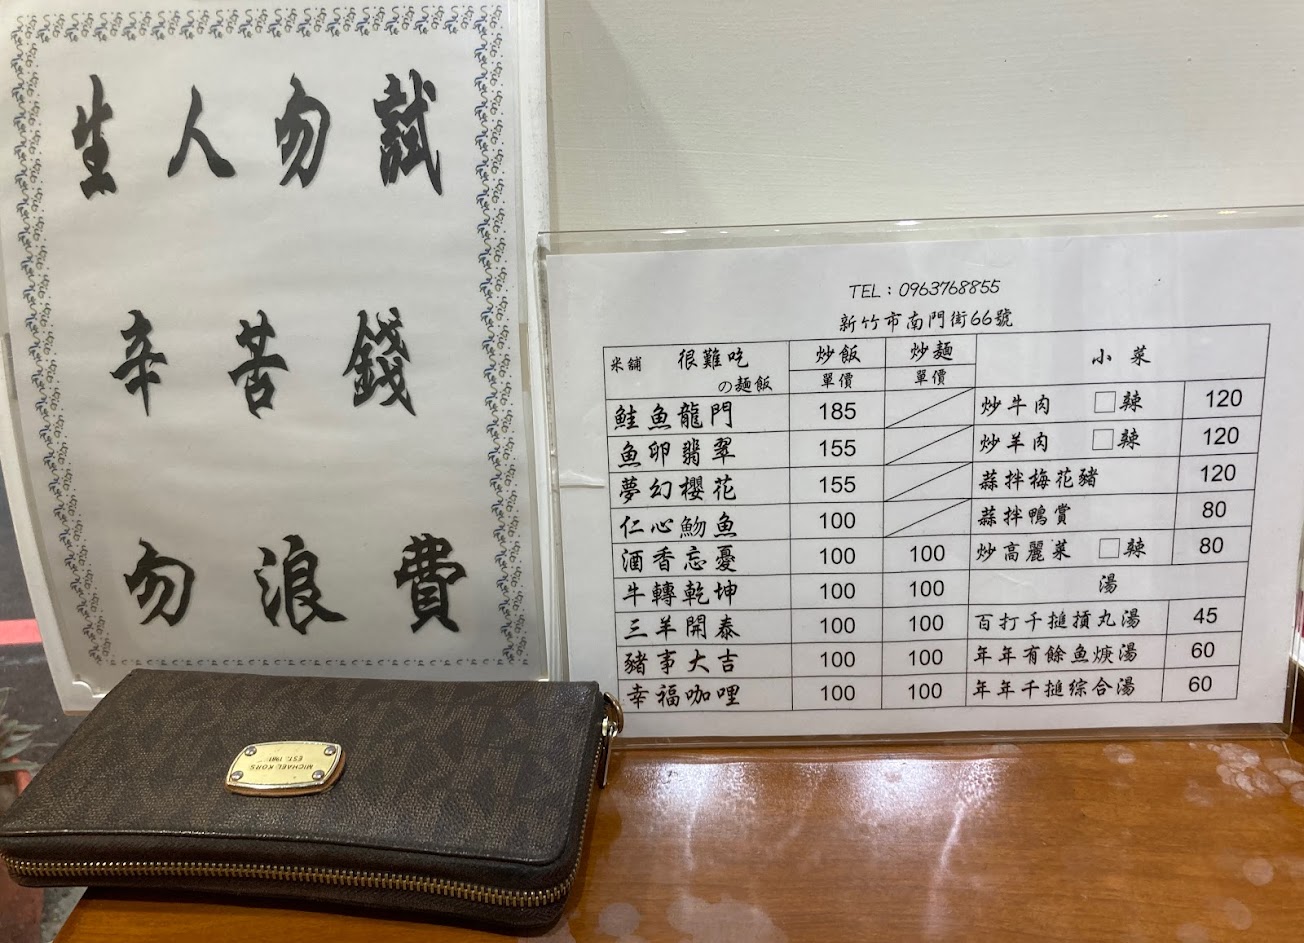 生人勿試
辛苦錢
勿浪費
TEL：0963768855
新竹市南門街66號
米舖 很難吃 の麵飯 炒飯 單價 炒麵 單價 小菜
鮭魚龍門 185 炒牛肉 □辣 120
魚卵翡翠 155 炒羊肉 □辣 120
夢幻櫻花 155 蒜拌梅花豬 120
仁心魩魚 100 蒜拌鴨賞 80
酒香忘憂 100 100 炒高麗菜 □辣 80
牛轉乾坤 100 100 湯
三羊開泰 100 100 百打千搥摃丸湯 45
豬事大吉 100 100 年年有餘魚焿湯 60
幸福咖哩 100 100 年年千搥綜合湯 60
MICHAEL KORS
EST. 1981